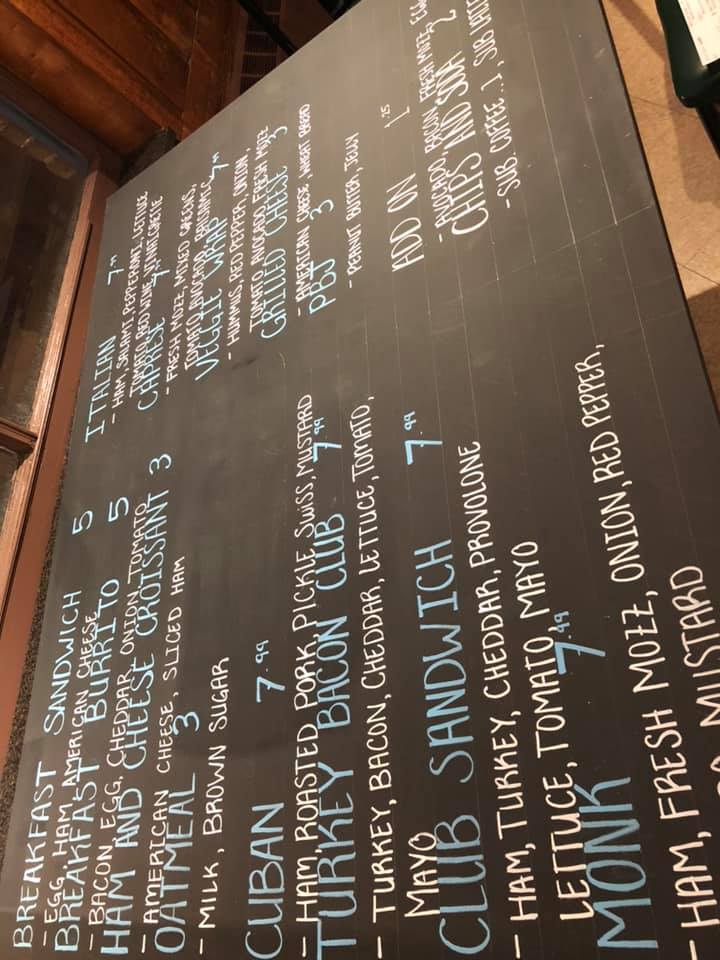 BREAKFAST SANDWICH 5
- EGG, HAM, AMERICAN CHEESE
BREAKFAST BURRITO 5
- BACON, EGG, CHEDDAR, ONION, TOMATO
HAM AND CHEESE CROISSANT 3
- AMERICAN CHEESE, SLICED HAM
OATMEAL 3
- MILK, BROWN SUGAR
CUBAN 7.99
- HAM, ROASTED PORK, PICKLE, SWISS, MUSTARD
TURKEY BACON CLUB 7.99
- TURKEY, BACON, CHEDDAR, LETTUCE, TOMATO,
MAYO
CLUB SANDWICH 7.99
- HAM, TURKEY, CHEDDAR, PROVOLONE
LETTUCE, TOMATO, MAYO
MONK 7.99
- HAM, FRESH MOZZ, ONION, RED PEPPER,
MUSTARD
ITALIAN 7.99
- HAM, SALAMI, PEPPERONI, LETTUCE
TOMATO, RED WINE VINEGARETTE
CAPRESE 7.99
- FRESH MOZZ, MIXED GREENS,
TOMATO, AVOCADO, BALSAMIC
VEGGIE WRAP 7.99
- HUMMUS, RED PEPPER, ONION,
TOMATO, AVOCADO, FRESH MOZZ
GRILLED CHEESE 3
- AMERICAN CHEESE, WHEAT BREAD
PBJ 3
- PEANUT BUTTER, JELLY
ADD ON 1.25
- AVOCADO, BACON, FRESH MOZZ, EGG
CHIPS AND SODA 2
- SUB COFFEE .1, SUB